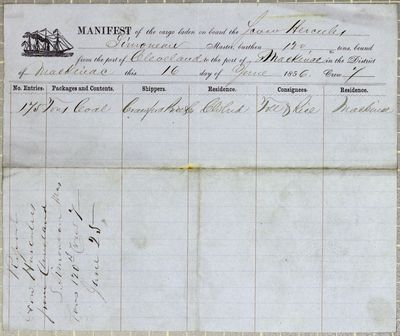 MANIFEST of the cargo laden on board the Scow Hercules
Master, burthen 120 tons, bound
from the port of Cleveland to the port of Mackinac in the District
of Mackinac this 16 day of June 1856. Crew 7
No. Entries. Packages and Contents. Shippers. Residence. Consignees. Residence.
175 Tons Coal Crawford & Co Clevd & Rice Mackinac
Scow Hercules
from Cleveland
Mas
Tons 120 Crew 7
June 25